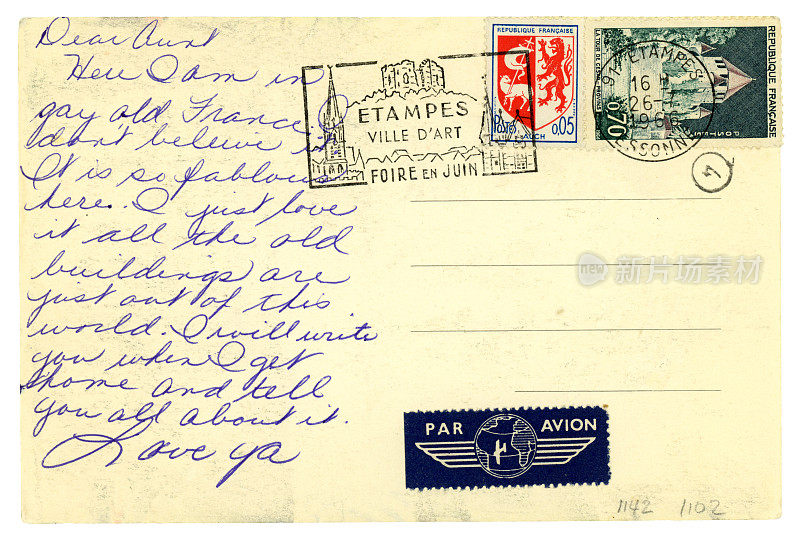 Dear Aunt
Here I am in
gay old France I
don't beleive it
It is so fablous
here. I just love
it all the old
buildings are
just out of this
world. I will write
you when I get
home and tell
you all about it.
Love ya
ETAMPES
VILLE D'ART
FOIRE EN JUIN
REPUBLIQUE FRANÇAISE
POSTES
AUCH
0,05
REPUBLIQUE FRANÇAISE
0,70
POSTES
91 ETAMPES
16 H
26-7
ESSONNE
4
new
PAR AVION
1142 1102